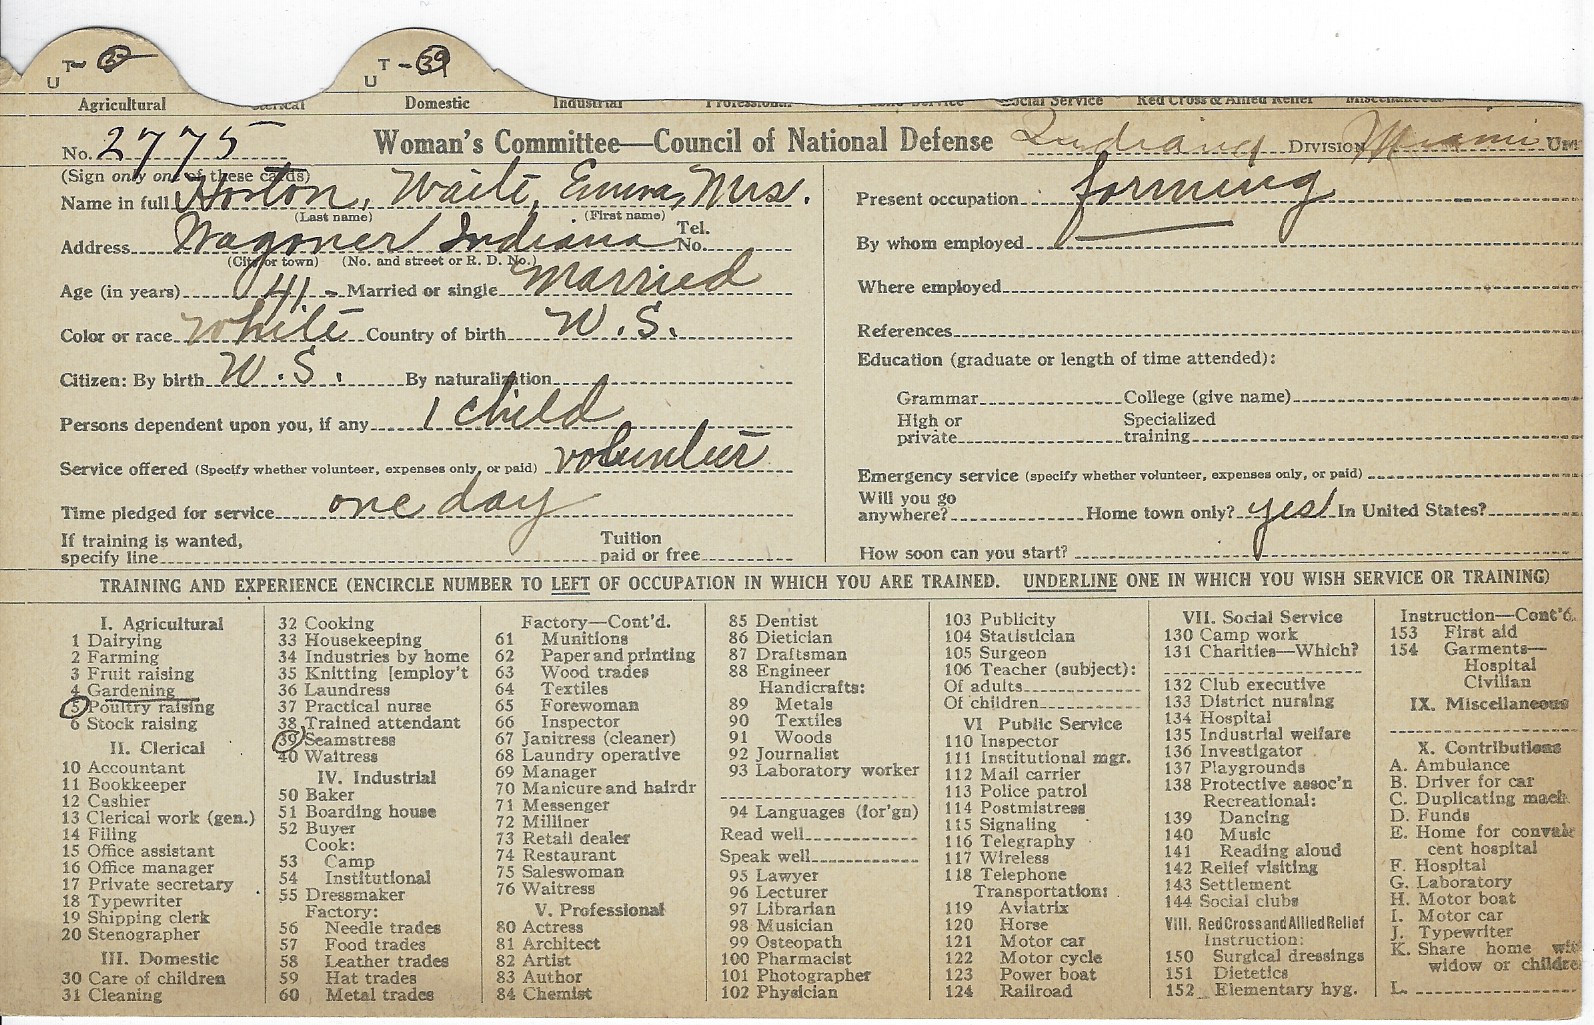 T- 5 T - 39
U U
Agricultural Clerical Domestic Industrial Professional Public Service Social Service Red Cross & Allied Relief Miscellaneous
No. 2775 Woman's Committee—Council of National Defense Indiana DIVISION Miami UNIT
(Sign only one of these cards)
Name in full Horton, Waite, Emma, Mrs.
(Last name) (First name)
Address Wagoner Indiana Tel. No.
(City or town) (No. and street or R. D. No.)
Age (in years) 41 - Married or single Married
Color or race White Country of birth U.S.
Citizen: By birth U.S. By naturalization
Persons dependent upon you, if any 1 child
Service offered (Specify whether volunteer, expenses only, or paid) volunteer
Time pledged for service one day
If training is wanted, specify line Tuition paid or free
Present occupation farming
By whom employed
Where employed
References
Education (graduate or length of time attended):
Grammar College (give name)
High or private Specialized training
Emergency service (specify whether volunteer, expenses only, or paid)
Will you go anywhere? Home town only? yes In United States?
How soon can you start?
TRAINING AND EXPERIENCE (ENCIRCLE NUMBER TO LEFT OF OCCUPATION IN WHICH YOU ARE TRAINED. UNDERLINE ONE IN WHICH YOU WISH SERVICE OR TRAINING)
I. Agricultural
1 Dairying
2 Farming
3 Fruit raising
4 Gardening
5 Poultry raising
6 Stock raising
II. Clerical
10 Accountant
11 Bookkeeper
12 Cashier
13 Clerical work (gen.)
14 Filing
15 Office assistant
16 Office manager
17 Private secretary
18 Typewriter
19 Shipping clerk
20 Stenographer
III. Domestic
30 Care of children
31 Cleaning
32 Cooking
33 Housekeeping
34 Industries by home
35 Knitting [employ't
36 Laundress
37 Practical nurse
38 Trained attendant
39 Seamstress
40 Waitress
IV. Industrial
50 Baker
51 Boarding house
52 Buyer
Cook:
53 Camp
54 Institutional
55 Dressmaker
Factory:
56 Needle trades
57 Food trades
58 Leather trades
59 Hat trades
60 Metal trades
Factory—Cont'd.
61 Munitions
62 Paper and printing
63 Wood trades
64 Textiles
65 Forewoman
66 Inspector
67 Janitress (cleaner)
68 Laundry operative
69 Manager
70 Manicure and hairdr
71 Messenger
72 Milliner
73 Retail dealer
74 Restaurant
75 Saleswoman
76 Waitress
V. Professional
80 Actress
81 Architect
82 Artist
83 Author
84 Chemist
85 Dentist
86 Dietician
87 Draftsman
88 Engineer
Handicrafts:
89 Metals
90 Textiles
91 Woods
92 Journalist
93 Laboratory worker
94 Languages (for'gn)
Read well
Speak well
95 Lawyer
96 Lecturer
97 Librarian
98 Musician
99 Osteopath
100 Pharmacist
101 Photographer
102 Physician
103 Publicity
104 Statistician
105 Surgeon
106 Teacher (subject):
Of adults
Of children
VI Public Service
110 Inspector
111 Institutional mgr.
112 Mail carrier
113 Police patrol
114 Postmistress
115 Signaling
116 Telegraphy
117 Wireless
118 Telephone
Transportation:
119 Aviatrix
120 Horse
121 Motor car
122 Motor cycle
123 Power boat
124 Railroad
VII. Social Service
130 Camp work
131 Charities—Which?
132 Club executive
133 District nursing
134 Hospital
135 Industrial welfare
136 Investigator
137 Playgrounds
138 Protective assoc'n
Recreational:
139 Dancing
140 Music
141 Reading aloud
142 Relief visiting
143 Settlement
144 Social clubs
VIII. Red Cross and Allied Relief
Instruction:
150 Surgical dressings
151 Dietetics
152 Elementary hyg.
Instruction—Cont'd.
153 First aid
154 Garments—
Hospital
Civilian
IX. Miscellaneous
X. Contributions
A. Ambulance
B. Driver for car
C. Duplicating mach.
D. Funds
E. Home for convales
cent hospital
F. Hospital
G. Laboratory
H. Motor boat
I. Motor car
J. Typewriter
K. Share home with
widow or children
L.